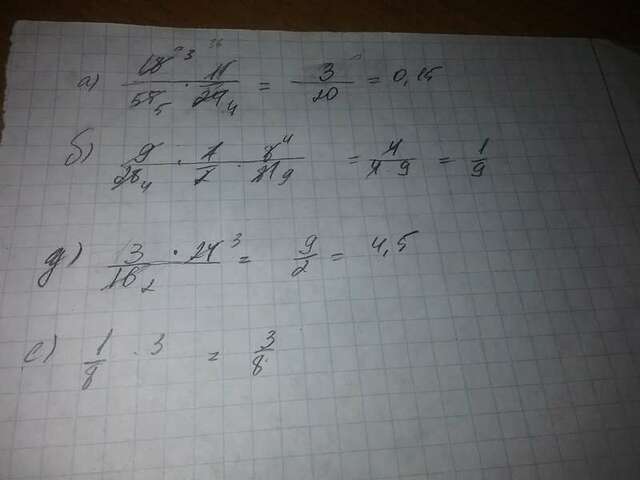 а) 18 3 / 55 5 · 11 / 24 4 = 3 / 20 = 0,15
б) 9 / 28 4 · 1 / 2 · 8 4 / 9 = 4 / 4 · 9 = 1 / 9
д) 3 · 24 3 / 16 2 = 9 / 2 = 4,5
е) 1 / 8 · 3 = 3 / 8